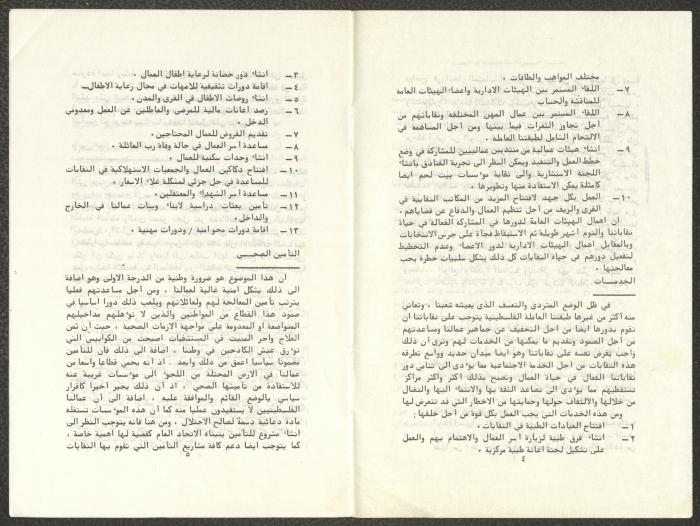 مختلف المواهب والطاقات .
٧ – اللقاء المستمر بين الهيئات الادارية واعضاء الهيئات العامة
للمناقشة والحساب .
٨ – اللقاء المستمر بين عمال المهن المختلفة ونقاباتهم من
اجل تجاوز الثغرات فيما بينها ومن اجل المساهمة في
الالتحام الشامل لطبقتنا العاملة .
٩ – انشاء هيئات عمالية من منتدبين عماليين للمشاركة في وضع
خطط العمل والتنفيذ ويمكن النظر الى تجربة الفنادق بانشاء
اللجنة الاستشارية والى نقابة مؤسسات بيت لحم ايضا
كامثلة يمكن الاستفادة منها وتطويرها .
١٠ – العمل بكل جهد لافتتاح المزيد من المكاتب النقابية في
القرى والريف من اجل تنظيم العمال والدفاع عن قضاياهم .
ان اهمال الهيئات العامة لدورها في المشاركة الفعالة في حياة
نقاباتنا والنوم اشهر طويلة ثم الاستيقاظ فجأة على جرس الانتخابات
وبالمقابل اهمال الهيئات الادارية لدور الاعضاء وعدم التخطيط
لتفعيل دورهم في حياة النقابات كل ذلك يشكل سلبيات خطرة يجب
معالجتها .
الخدمــات
في ظل الوضع المتردي والتعسف الذي يعيشه شعبنا ، وتعاني
منه اكثر من غيرها طبقتنا العاملة الفلسطينية يتوجب على نقاباتنا ان
تقوم بدورها ايضا من اجل التخفيف عن جماهير عمالنا ومساعدتهم
من اجل الصمود وتقديم ما يمكنها من الخدمات لهم ونرى أن ذلك
واجب يفرض نفسه على نقاباتنا وهو ايضا ميدان جديد وواسع تطرقه
هذه النقابات من اجل الخدمة الاجتماعية مما يؤدي الى تنامي دور
نقاباتنا الفعال في حياة العمال وتصبح بذلك أكثر وأكثر مراكز
تستقطبهم مما يؤدي الى تصاعد الثقة بها والانتماء اليها والنضال
من خلالها والالتفاف حولها وحمايتها من الاخطار التي قد تتعرض لها
ومن هذه الخدمات التي يجب العمل بكل قوة من اجل خلقها :
١ – افتتاح العيادات الطبية في النقابات .
٢ – انشاء فرق طبية لزيارة أسر العمال والاهتمام بهم والعمل
على تشكيل لجنة اغاثة طبية مركزية .
٤
٣ – انشاء دور حضانة لرعاية اطفال العمال .
٤ – اقامة دورات تثقيفية للامهات في مجال رعاية الاطفال
٥ – انشاء روضات الاطفال في القرى والمدن .
٦ – رصد اعانات مالية للمرضى والعاطلين عن العمل ومعدومي
الدخل .
٧ – تقديم القروض للعمال المحتاجين .
٨ – مساعدة أسر العمال في حالة وفاة رب العائلة .
٩ – انشاء وحدات سكنية للعمال .
١٠ – افتتاح دكاكين العمال والجمعيات الاستهلاكية في النقابات
للمساعدة في حل جزئي لمشكلة غلاء الاسعار .
١١ – مساعدة أسر الشهداء والمعتقلين .
١٢ – تأمين بعثات دراسية لابناء وبنات عمالنا في الخارج
والداخل .
١٣ – اقامة دورات محو امية / ودورات مهنية .
التأمين الصحــي
ان هذا الموضوع هو ضرورة وطنية من الدرجة الاولى وهو اضافة
الى ذلك يشكل امنية غالية لعمالنا ، ومن اجل مساعدتهم فعليا
يترتب تأمين المعالجة لهم ولعائلاتهم ويلعب ذلك دورا اساسيا في
صمود هذا القطاع من المواطنين والذين لا تؤهلهم مداخيلهم
المتواضعة او المعدومة على مواجهة الازمات الصحية ، حيث أن ثمن
العلاج واجر المبيت في المستشفيات اصبحت من الكوابيس التي
تؤرق عيش الكادحين في وطننا ، اضافة الى ذلك فان للتأمين
مضمونا سياسيا اعمق من ذلك وابعد . اذ أنه يحمي قطاعا واسعا من
عمالنا في الارض المحتلة من اللجوء الى مؤسسات غريبة عنه
للاستفادة من تأمينها الصحي ، اذ أن ذلك يجير أخيرا كاقرار
سياسي بالوضع القائم والموافقة عليه ، اضافة الى أن عمالنا
الفلسطينيين لا يستفيدون عمليا منه كما أن هذه المؤسسات تستغله
مادة دعائية دسمة لصالح الاحتلال ، ومن هنا فانه يتوجب النظر الى
انشاء مشروع للتأمين يتبناه الاتحاد العام كقضية لها اهمية خاصة ،
كما يتوجب ايضا دعم كافة مشاريع التأمين التي تقوم بها النقابات
٥